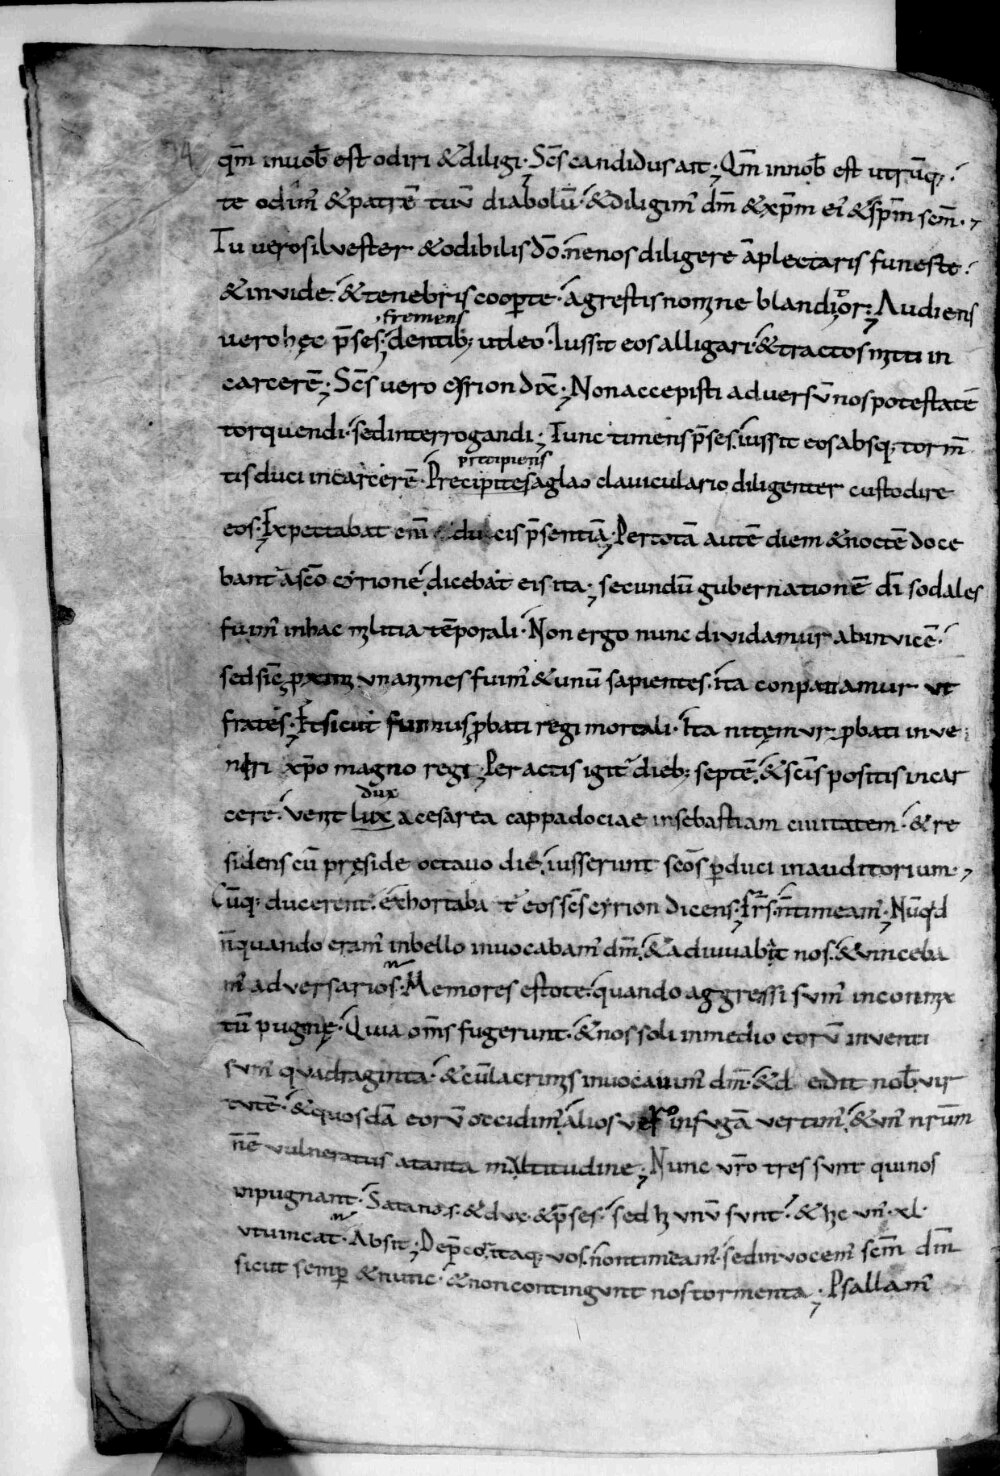 qm̄ inuob̄ est odiri & diligi· Sc̄s candidus ait; Qm̄ innob̄ est utrūq;
te odim̄ & patrē tuū diabolū· & diligim̄ dm̄ & xp̄m ei & sp̄m sc̄m·
Tu uero siluester & odibilis dō· n̄ enos diligere āplectaris funeste·
& inuide· & tenebris coop̄te· agrestis nomine blandior; Audiens
fremens
uero hęc p̄ses· dentib; ut leo· Iussit eos alligari· & tractos mitti in
carcerē; Sc̄s uero dix̄; Non accepisti aduersū nos potestatē
torquendi· sed interrogandi; Tunc timens p̄ses· iussit eos absq; torm̄
precipiens
tis duci incarcerē· Precipites aglao clauiculario diligenter custodire
eos· Expectabat em̄ ducis p̄sentiā; Pertotā autē diem & noctē doce
bant̄ asc̄o cyrione· dicebat eis ita; secundū gubernationē dī sodales
fuim̄ inhac militia tēporali· Non ergo nunc diuidamur abinuicē·
sed sic̄ unanimes fuim̄ & unū sapientes· ita conpatiamur ut
frates· Et sicut fuimus p̄bati regi mortali· Ita nitemur p̄bati inue
niri xp̄o magno regi; Peractis igit̄ dieb; septē· & sc̄is positis incar
dux
cere· uenit lux acesarea cappadociae insebastiam ciuitatem· & re
sidens cū pręside octauo die· iusserunt sc̄os p̄duci inauditorium·
Cūq; ducerent· exhortabat eos sc̄s cyrion dicens· Fr̄s· n̄ timeam̄; Nūqd
n̄ quando eram̄ inbello inuocabam̄ dm̄· & adiuuabit nos· & uinceba
m̄ aduersarios· Memores estote· quando aggressi sum̄ incommix
tū pugnę· Quia om̄s fugerunt· & nos soli inmedio eorū inuenti
sum̄ quadraginta· & cū lacrimis inuocauim̄ dm̄· & d edit nob̄ uir
tutē· & quosdā eorū occidim̄· alios uero infugā uertim̄· & un̄ nr̄um
n̄ē uulneratus atanta multitudine; Nunc ur̄o tres sunt qui nos
inpugnant· Satanas· & dux· & p̄ses· sed unū sunt· & un̄· xl·
utuincat· Absit; Dep̄cor itaq; uos· n̄on timeam̄· sed inuocem̄ sc̄m dm̄
sicut semp̄ & nunc· & non contingunt nos tormenta; Psallam̄